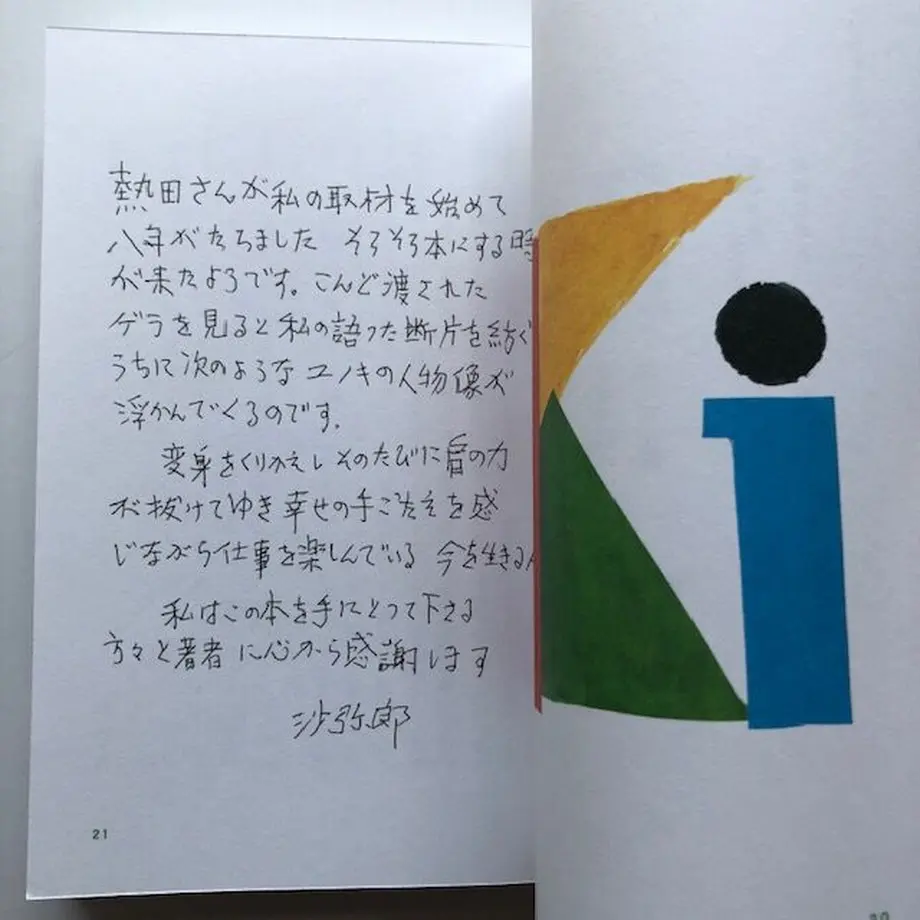 熱田さんが私の取材を始めて
八年がたちました そろそろ本にする時
が来たようです。こんど渡された
ゲラを見ると私の語った断片を紡ぐ
うちに次のようなユノキの人物像が
浮かんでくるのです。
変身をくりかえしそのたびに肩の力
が抜けてゆき幸せの手ごたえを感
じながら仕事を楽しんでいる 今を生きる人
私はこの本を手にとって下さる
方々と著者に心から感謝します
沙弥郎
21
Ki